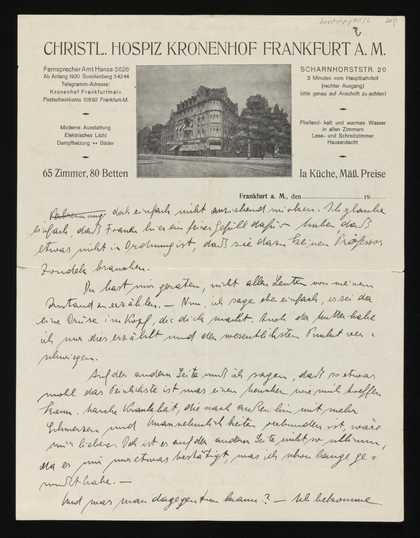 CHRISTL. HOSPIZ KRONENHOF FRANKFURT A. M.
Fernsprecher Amt Hansa 2626
Ab Anfang 1930 Senckenberg 34244
Telegramm-Adresse:
Kronenhof Frankfurtmain
Postscheckkonto 10592 Frankfurt-M.
Moderne Ausstattung
Elektrisches Licht
Dampfheizung •• Bäder
65 Zimmer, 80 Betten
SCHARNHORSTSTR. 20
3 Minuten vom Hauptbahnhof
(rechter Ausgang)
(bitte genau auf Anschrift zu achten)
Fließend- kalt und warmes Wasser
in allen Zimmern
Lese- und Schreibzimmer
Hausandacht
Ia Küche, Mäß. Preise
Frankfurt a. M., den 19
doch einfach nicht anziehend wirken. Ich glaube
einfach daß Frauen hier ein feines Gefühl dafür haben daß
etwas nicht in Ordnung ist, daß sie dazu keinen Professor
Zondek brauchen.
Du hast mir geraten, nicht allen Leuten von meinem
Zustand zu erzählen. — Nun, ich sage eben einfach, es sei da
eine Drüse im Kopf, die dick macht. Auch der Mutter habe
ich nur dies erzählt und den wesentlichsten Punkt ver-
schwiegen.
Auf der anderen Seite muß ich sagen, daß so etwas
wohl das Peinlichste ist was einen Menschen wie mich treffen
kann. Manche Krankheit, die nach außen hin mit mehr
Schmerzen und Unannehmlichkeiten verbunden ist, wäre
mir lieber. Doch ist es auf der anderen Seite nicht so schlimm,
da es mir nur etwas bestätigt, was ich schon lange ge-
wußt habe. —
Und was man dagegen tun kann? — Ich bekomme